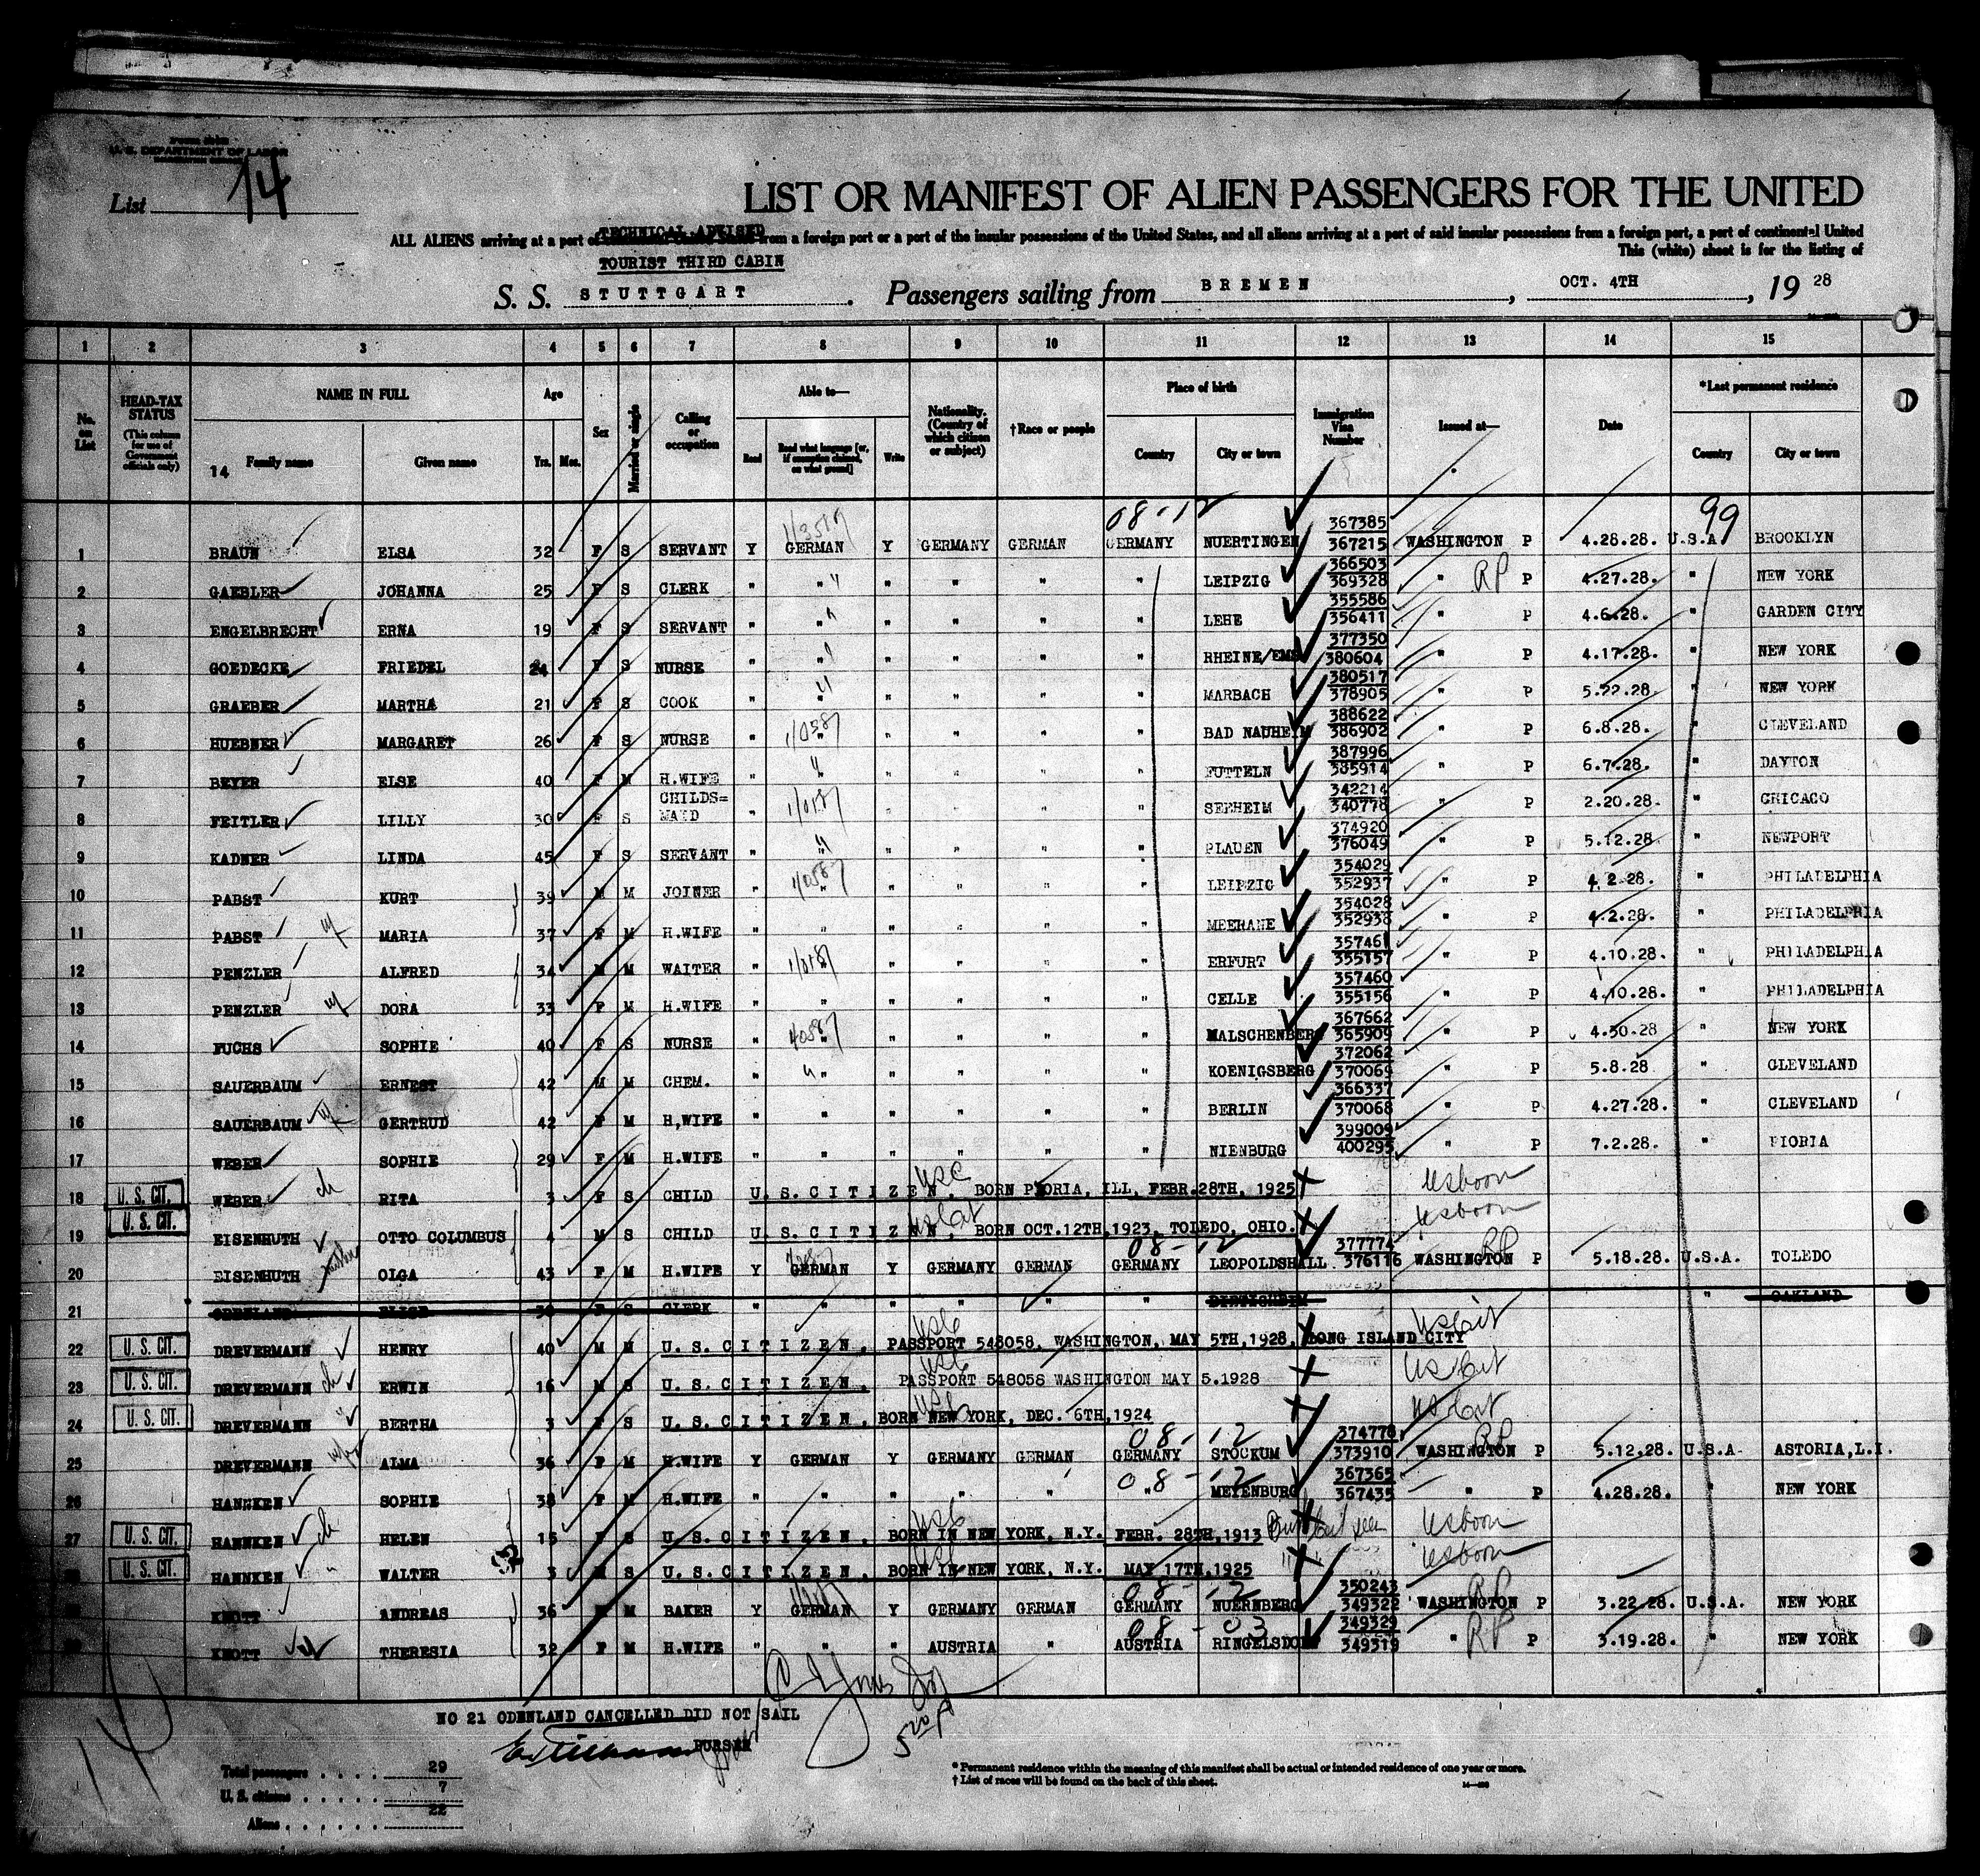 U. S. DEPARTMENT OF LABOR
List 14
LIST OR MANIFEST OF ALIEN PASSENGERS FOR THE UNITED
ALL ALIENS arriving at a port of from a foreign port or a port of the insular possessions of the United States, and all aliens arriving at a port of said insular possessions from a foreign port, a port of continental United
TOURIST THIRD CABIN
This (white) sheet is for the listing of
S. S. STUTTGART. Passengers sailing from BREMEN, OCT. 4TH, 19 28
1 2 3 4 5 6 7 8 9 10 11 12 13 14 15
No. on List
HEAD-TAX STATUS (This column for use of Government officials only)
NAME IN FULL
14 Family name Given name
Age Yrs. Mos.
Sex
Married or single
Calling or occupation
Able to— Read Read what language [or, if exemption claimed, on what ground] Write
Nationality. (Country of which citizen or subject)
†Race or people
Place of birth Country City or town
Immigration Visa Number
Issued at—
Date
*Last permanent residence Country City or town
08-12 99
1 BRAUN ELSA 32 F S SERVANT Y GERMAN Y GERMANY GERMAN GERMANY NUERTINGEN 367385 367215 WASHINGTON P 4.28.28. U.S.A. BROOKLYN
2 GAEBLER JOHANNA 25 F S CLERK " " " " " " LEIPZIG 366503 369328 " RP P 4.27.28. " NEW YORK
3 ENGELBRECHT ERNA 19 F S SERVANT " " " " " " LEHE 355586 356411 " P 4.6.28. " GARDEN CITY
4 GOEDECKE FRIEDEL 24 F S NURSE " " " " " " RHEINE/EMS 377350 380604 " P 4.17.28. " NEW YORK
5 GRAEBER MARTHA 21 F S COOK " " " " " " MARBACH 380517 378905 " P 5.22.28. " NEW YORK
6 HUEBNER MARGARET 26 F S NURSE " " " " " " BAD NAUHEIM 388622 386902 " P 6.8.28. " CLEVELAND
7 BEYER ELSE 40 F M H.WIFE " " " " " " FUTTELN 387996 385914 " P 6.7.28. " DAYTON
8 FEITLER LILLY 30 F S CHILDS= MAID " " " " " " SEEHEIM 342214 340778 " P 2.20.28. " CHICAGO
9 KADNER LINDA 45 F S SERVANT " " " " " " PLAUEN 374920 376049 " P 5.12.28 " NEWPORT
10 PABST KURT 39 M M JOINER " " " " " " LEIPZIG 354029 352937 " P 4.2.28. " PHILADELPHIA
11 PABST MARIA 37 F M H.WIFE " " " " " " MEERANE 354028 352938 " P 4.2.28. " PHILADELPHIA
12 PENZLER ALFRED 34 M M WAITER " " " " " " ERFURT 357461 355157 " P 4.10.28. " PHILADELPHIA
13 PENZLER DORA 33 F M H.WIFE " " " " " " CELLE 357460 355156 " P 4.10.28. " PHILADELPHIA
14 FUCHS SOPHIE 40 F S NURSE " " " " " " MALSCHENBERG 367662 365909 " P 4.30.28 " NEW YORK
15 SAUERBAUM ERNEST 42 M M CHEM. " " " " " " KOENIGSBERG 372062 370069 " P 5.8.28 " CLEVELAND
16 SAUERBAUM GERTRUD 42 F M H.WIFE " " " " " " BERLIN 366337 370068 " P 4.27.28. " CLEVELAND
17 WEBER SOPHIE 29 F M H.WIFE " " " " " " NIENBURG 399009 400295 " P 7.2.28. " PIORIA
18 U. S. CIT. WEBER ch RITA 3 F S CHILD U.S.CITIZEN. BORN PEORIA, ILL, FEBR.28TH, 1925 usborn
19 U. S. CIT. EISENHUTH OTTO COLUMBUS 4 M S CHILD U.S.CITIZEN. BORN OCT.12TH,1923, TOLEDO, OHIO. usborn
08-12
20 EISENHUTH OLGA 43 F M H.WIFE Y GERMAN Y GERMANY GERMAN GERMANY LEOPOLDSHALL 377774 376116 WASHINGTON RP P 5.18.28. U.S.A. TOLEDO
21 ODENLAND ELISE 30 F S CLERK " " " " " " " OAKLAND
22 U. S. CIT. DREVERMANN HENRY 40 M M U.S.CITIZEN. PASSPORT 548058, WASHINGTON, MAY 5TH,1928, LONG ISLAND CITY us cit
23 U. S. CIT. DREVERMANN ch ERWIN 16 M S U.S.CITIZEN. PASSPORT 548058 WASHINGTON MAY 5.1928 us cit
24 U. S. CIT. DREVERMANN " BERTHA 3 F S U.S.CITIZEN. BORN NEW YORK, DEC. 6TH,1924 us cit
08-12
25 DREVERMANN ALMA 36 F M H.WIFE Y GERMAN Y GERMANY GERMAN GERMANY STOCKUM 374778 373910 WASHINGTON RP P 5.12.28. U.S.A. ASTORIA,L.I.
08-12
26 HANNKEN SOPHIE 38 F M H.WIFE " " " " " " MEYENBURG 367365 367435 " P 4.28.28. " NEW YORK
27 U. S. CIT. HANNKEN ch HELEN 15 F S U.S.CITIZEN. BORN IN NEW YORK, N.Y. FEBR. 28TH,1913 usborn
U. S. CIT. HANNKEN " WALTER 3 M S U.S.CITIZEN. BORN IN NEW YORK, N.Y. MAY 17TH,1925 usborn
08-12
KNOTT ANDREAS 36 M M BAKER Y GERMAN Y GERMANY GERMAN GERMANY NUERNBERG 350243 349322 WASHINGTON RP P 3.22.28. U.S.A. NEW YORK
08-03
KNOTT THERESIA 32 F M H.WIFE " " " AUSTRIA " AUSTRIA RINGELSDORF 349329 349319 " RP P 3.19.28. " NEW YORK
NO 21 ODENLAND CANCELLED DID NOT SAIL
PURSER
Total passengers . . . . . 29
U. S. citizens . . . . . 7
Aliens . . . . . . 22
* Permanent residence within the meaning of this manifest shall be actual or intended residence of one year or more.
† List of races will be found on the back of this sheet.
14